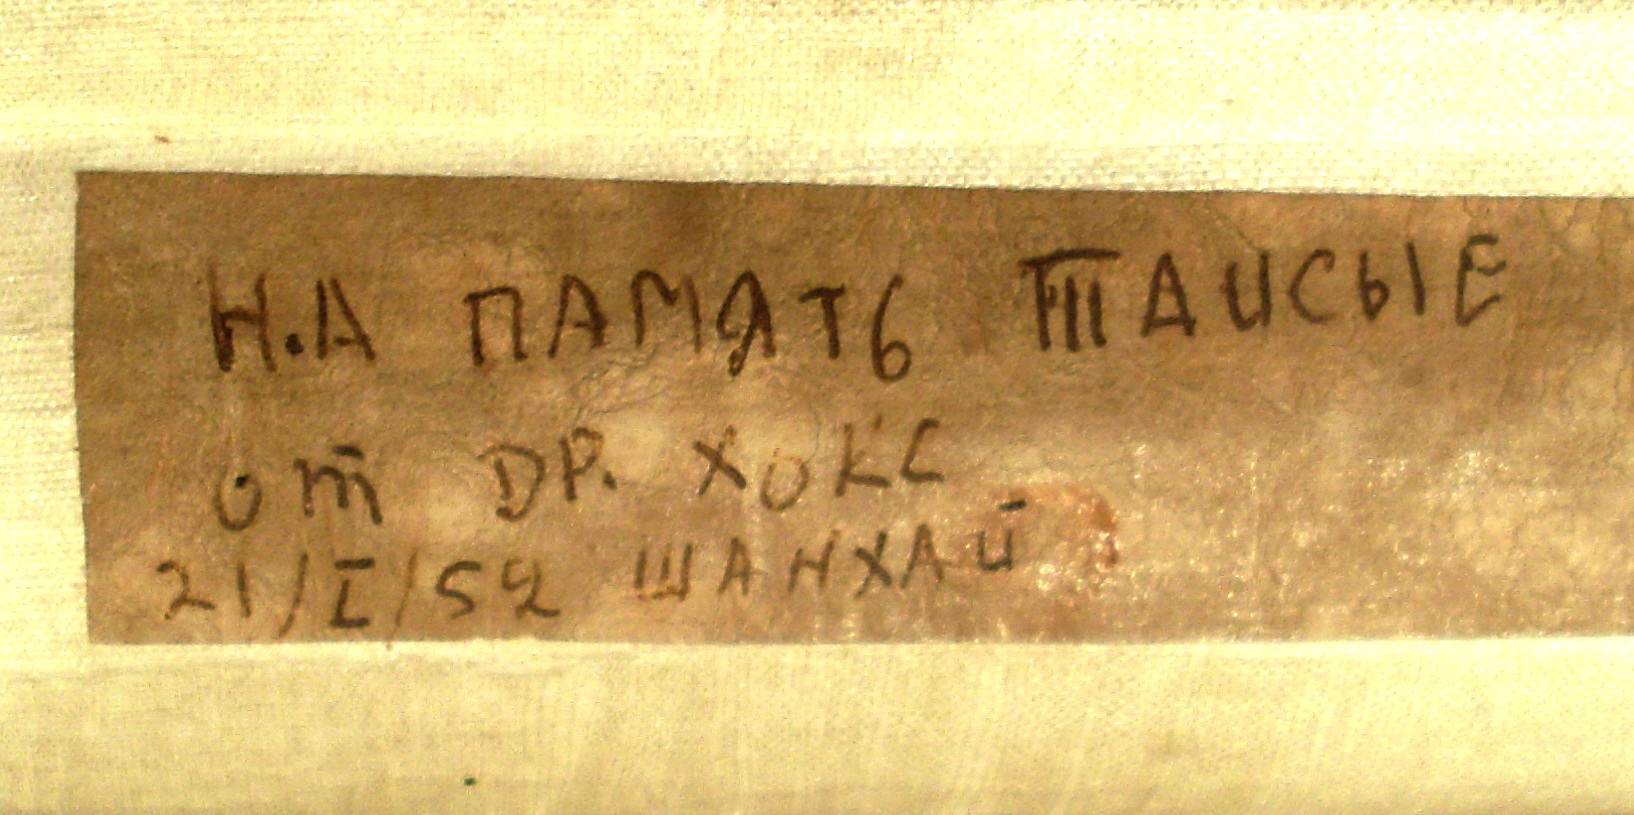 Н.А ПАМЯТЬ ТАИСЫЕ
от DР. ХОКС
21/I/52 ШАНХАЙ